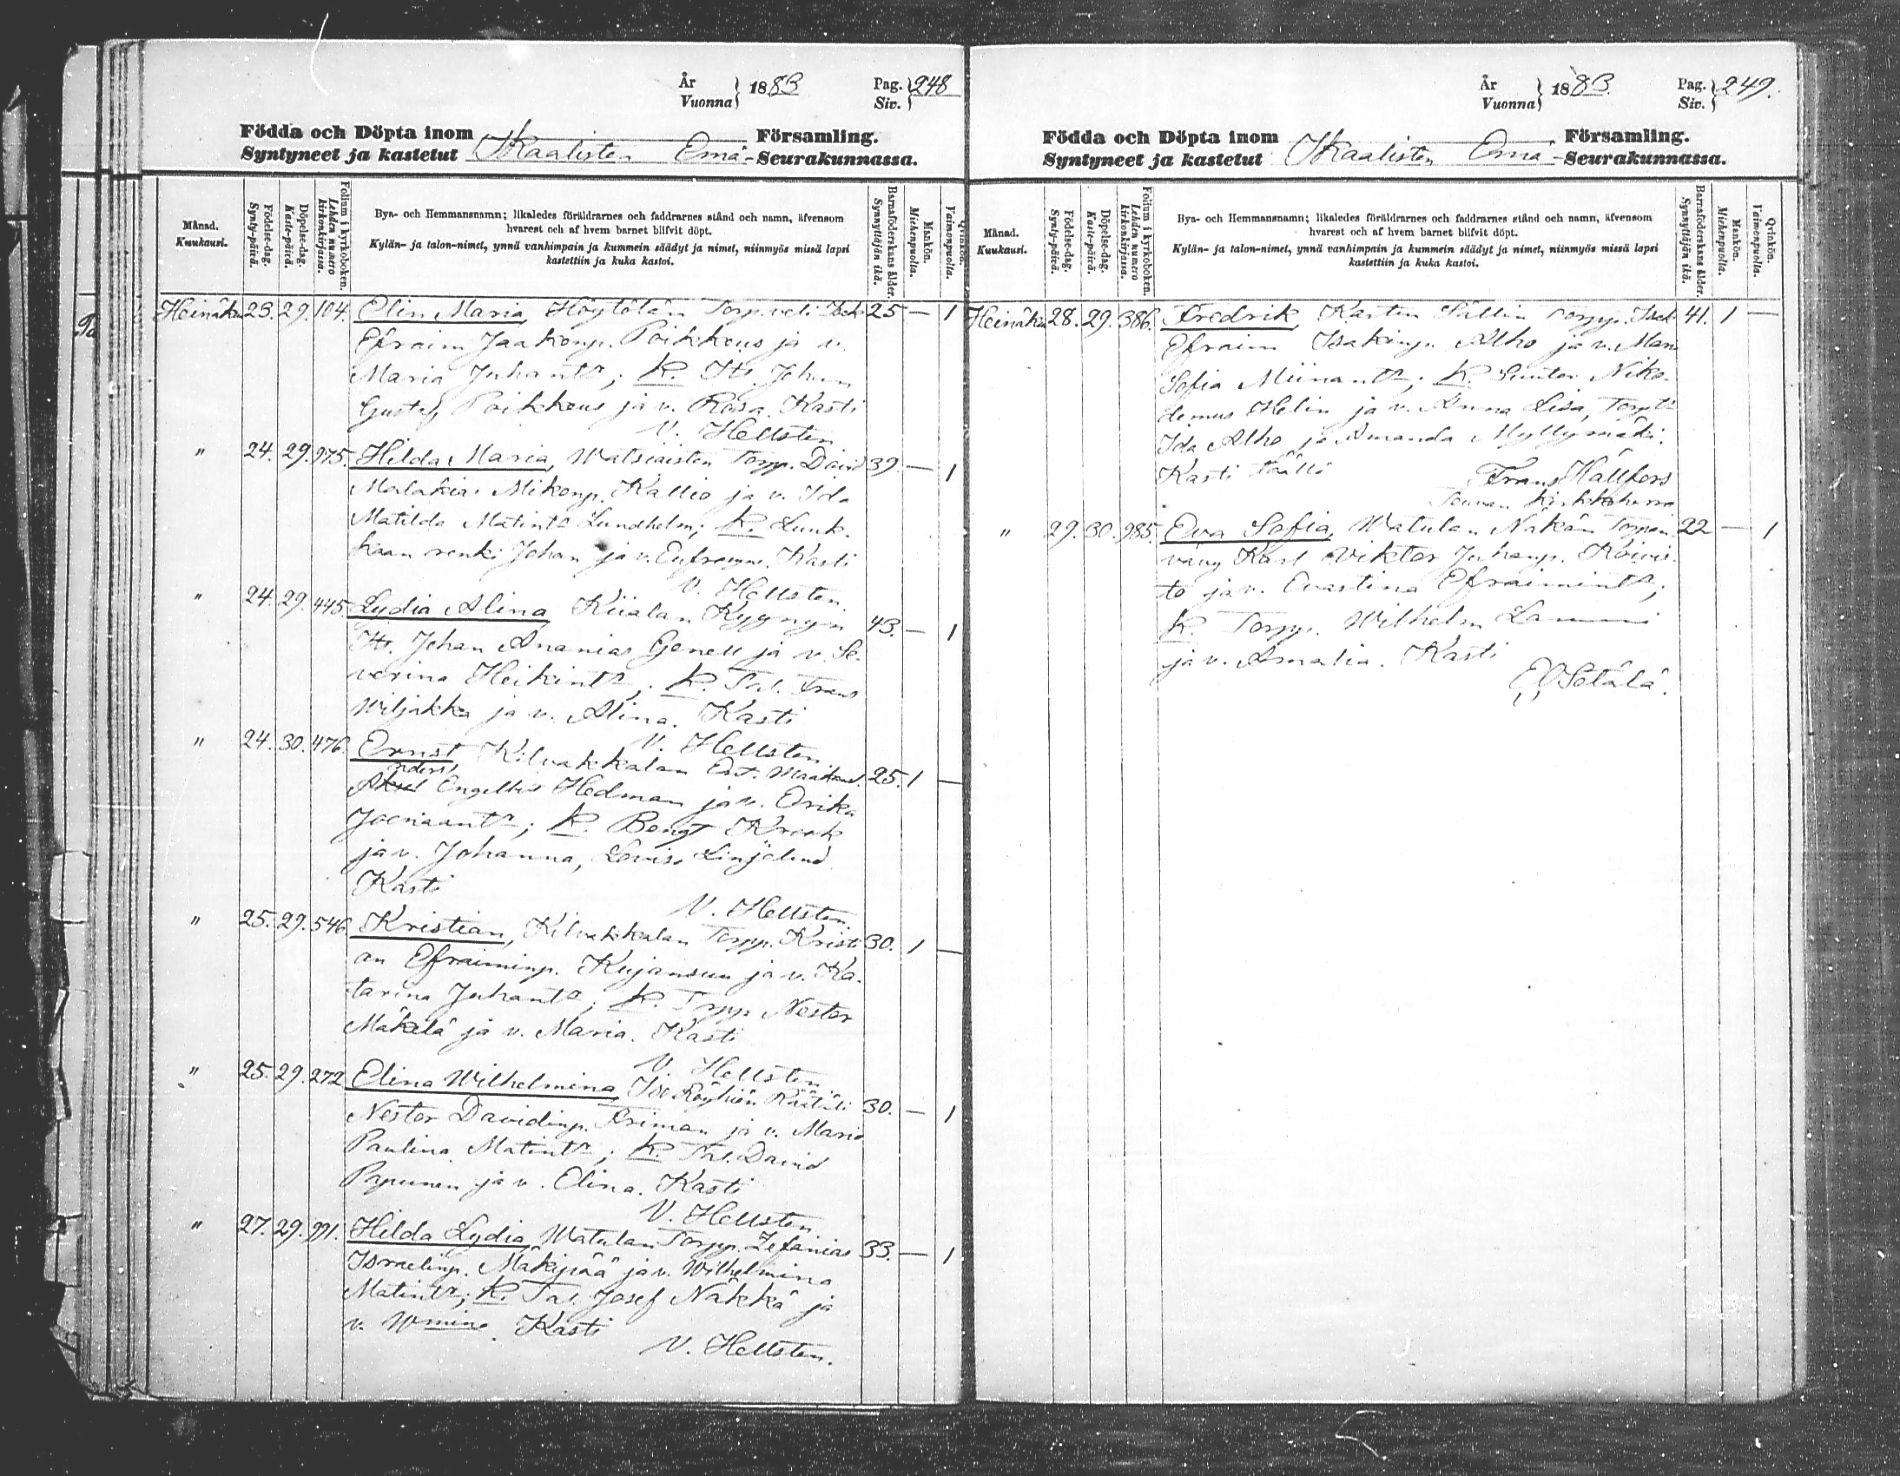 År
Vuonna} 1883
Pag.
Siv.} 248
Födda och Döpta inom
Syntyneet ja kastetut Ikaalisten Emä- Församling.
Seurakunnassa.
Månad.
Kuukausi.
Födelse-dag.
Synty-päivä.
Döpelse-dag.
Kaste-päivä.
Folium i kyrkoboken.
Lehden numero kirkonkirjassa.
Bya- och Hemmansnamn; likaledes föräldrarnes och faddrarnes stånd och namn, äfvensom
hvarest och af hvem barnet blifvit döpt.
Kylän- ja talon-nimet, ynnä vanhimpain ja kummein säädyt ja nimet, niinmyös missä lapsi
kastettiin ja kuka kastoi.
Barnaföderskans ålder.
Synnyttäjän ikä.
Mankön.
Miehenpuolia.
Qvinkön.
Vaimonpuolia.
Heinäku 23. 29. 104. Elin Maria, Höytölän Torp. veli Isak 25 — 1
Efraim Jaakonp. Poikkeus ja v.
Maria Juhant:r; K. Its. Johan
Gustaf Poikkeus ja v. Rosa. Kasti
V. Hellsten.
" 24. 29. 975. Hilda Maria, Watsiaisten Torpp. David 39. — 1
Malakias Mikonp. Kallio ja v. Ida
Matilda Matint:r Lundholm; K. Lunk-
kaan renki Johan ja v. Eufrosyne. Kasti
V. Hellsten.
" 24. 29. 445. Lydia Alina, Kiialan Kyynyn 43. — 1
Its. Johan Ananias Genell ja v. Se-
verina Heikint:r; K. Tal. Frans
Wiljakka ja v. Alina. Kasti
V. Hellsten.
" 24. 30. 476. Ernst, Kilvakkalan Ent. Maakaup. 25. 1 —
Anders Engelbr. Hedman ja v. Erika
Joonaant:r; K. Bengt Krook
ja v. Johanna, Lovisa Linjelund
Kasti
V. Hellsten.
" 25. 29. 546. Kristian, Kilvakkalan Torpp. Kristi- 30. 1 —
an Efraiminp. Kujansuu ja v. Ka-
tarina Juhant:r; K. Torpp. Nestor
Mäkelä ja v. Maria. Kasti
V. Hellsten.
" 25. 29. 272. Elina Wilhelmina, Iso Röyhiön Räätäli 30. — 1
Nestor Davidinp. Friman ja v. Maria
Paulina Matint:r; K. Tal. David
Papunen ja v. Elina. Kasti
V. Hellsten.
" 27. 29. 991. Hilda Lydia, Watulan Torpp. Zefanias 33. — 1
Israelinp. Mäkipää ja v. Wilhelmina
Matint:r; K. Tal. Josef Näkkä ja
v. Wmina. Kasti
V. Hellsten.
År
Vuonna} 1883.
Pag.
Siv.} 249.
Födda och Döpta inom
Syntyneet ja kastetut Ikaalisten Emä- Församling.
Seurakunnassa.
Månad.
Kuukausi.
Födelse-dag.
Synty-päivä.
Döpelse-dag.
Kaste-päivä.
Folium i kyrkoboken.
Lehden numero kirkonkirjassa.
Bya- och Hemmansnamn; likaledes föräldrarnes och faddrarnes stånd och namn, äfvensom
hvarest och af hvem barnet blifvit döpt.
Kylän- ja talon-nimet, ynnä vanhimpain ja kummein säädyt ja nimet, niinmyös missä lapsi
kastettiin ja kuka kastoi.
Barnaföderskans ålder.
Synnyttäjän ikä.
Mankön.
Miehenpuolia.
Qvinkön.
Vaimonpuolia.
Heinäku 28. 29. 386. Fredrik, Kartun Sällin Torpp. Isak 41. 1 —
Efraim Isakinp. Alho ja v. Maria
Sofia Miinant:r; K. Suutari Niko-
demus Helin ja v. Anna Lisa, Torpt:r
Ida Alho ja Amanda Myllymäki.
Kasti täällä
Frans Hällfors
Kirkkoherra
" 29. 30. 985. Eva Sofia, Watulan Näkän Torpan 22 — 1
vävy Karl Viktor Juhanp. Koivis-
to ja v. Evastina Efraimint:r;
K. Torpp. Wilhelm Lammi
ja v. Amalia. Kasti
E. Setälä.